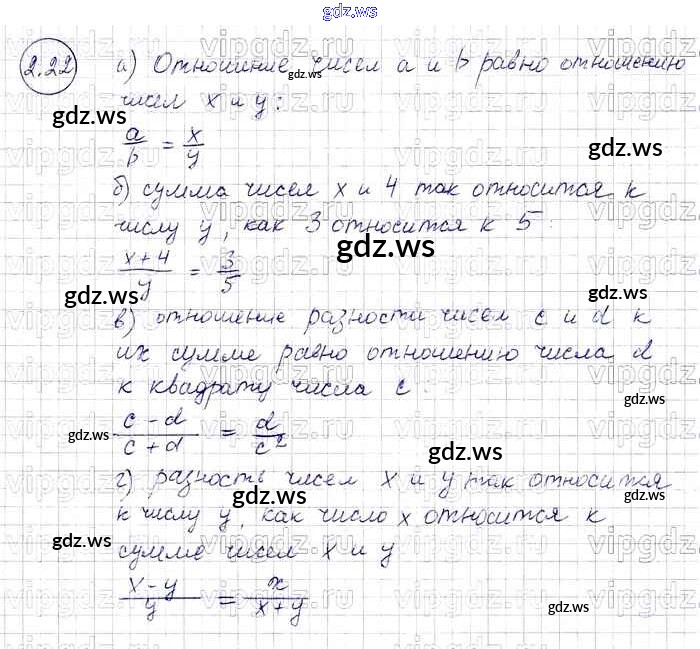 gdz.ws
2.22
а) Отношение чисел a и b равно отношению
чисел x и y:
a/b = x/y
б) сумма чисел x и 4 так относится к
числу y, как 3 относится к 5:
x+4/y = 3/5
в) отношение разности чисел c и d к
их сумме равно отношению числа d
к квадрату числа c:
c-d/c+d = d/c²
г) разность чисел x и y так относится
к числу y, как число x относится к
сумме чисел x и y
x-y/y = x/x+y
gdz.ws
gdz.ws
gdz.ws
gdz.ws
gdz.ws
gdz.ws
gdz.ws
gdz.ws
gdz.ws
gdz.ws
gdz.ws
gdz.ws
gdz.ws
vipgdz.ru